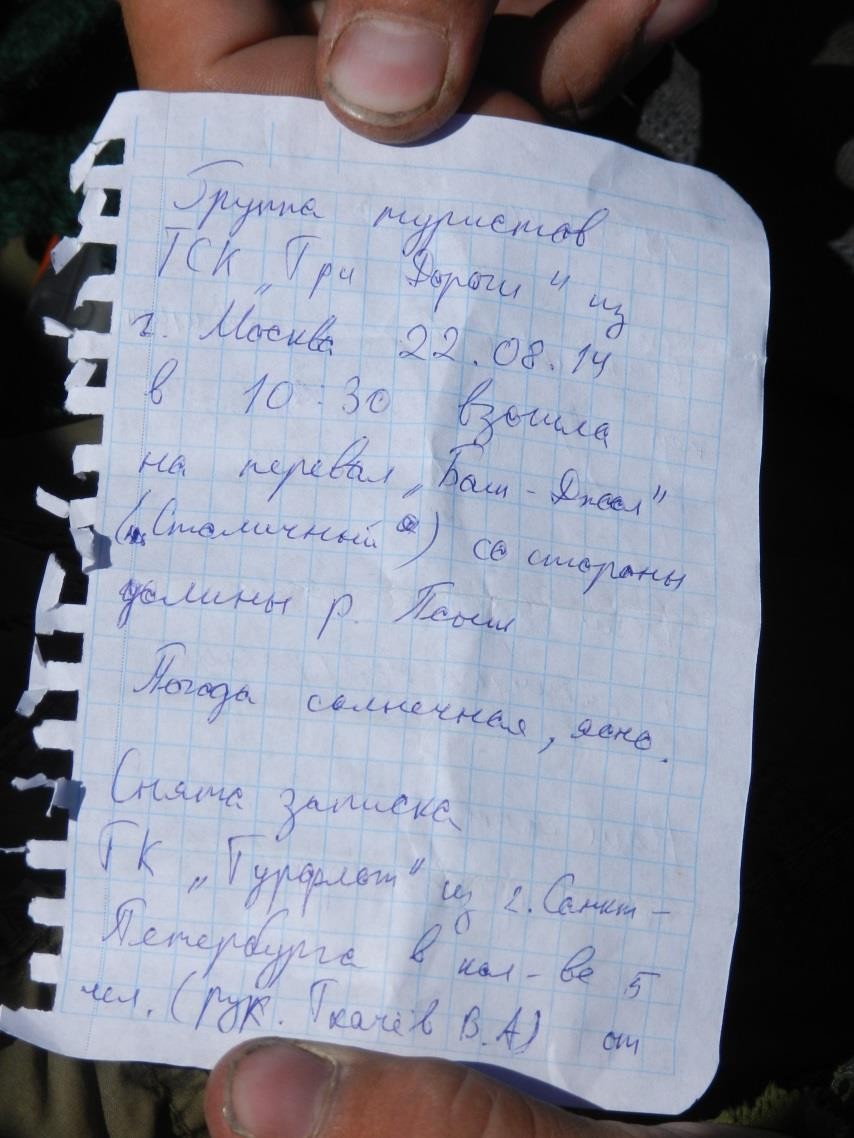 Группа туристов
ТСК „Три Дороги" из
г. Москва 22.08.14
в 10:30 взошла
на перевал „Баш-Джол"
(„Столичный") со стороны
долины р. Псыш
Погода солнечная, ясно.
Снята записка
ТК „Турфлот" из г. Санкт-
Петербурга в кол-ве 5
чел. (рук. Ткачёв В.А) от